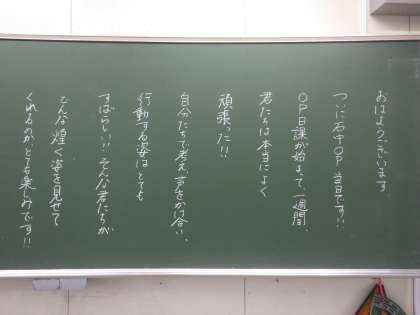 おはようございます
ついに石中OP当日です!!
OP日課が始まって、一週間、
君たちは本当によく
頑張った!!
自分たちで考え、声をかけ合い、
行動する姿はとても
すばらしい!!そんな君たちが
どんな煌く姿を見せて
くれるのか、とても楽しみです!!